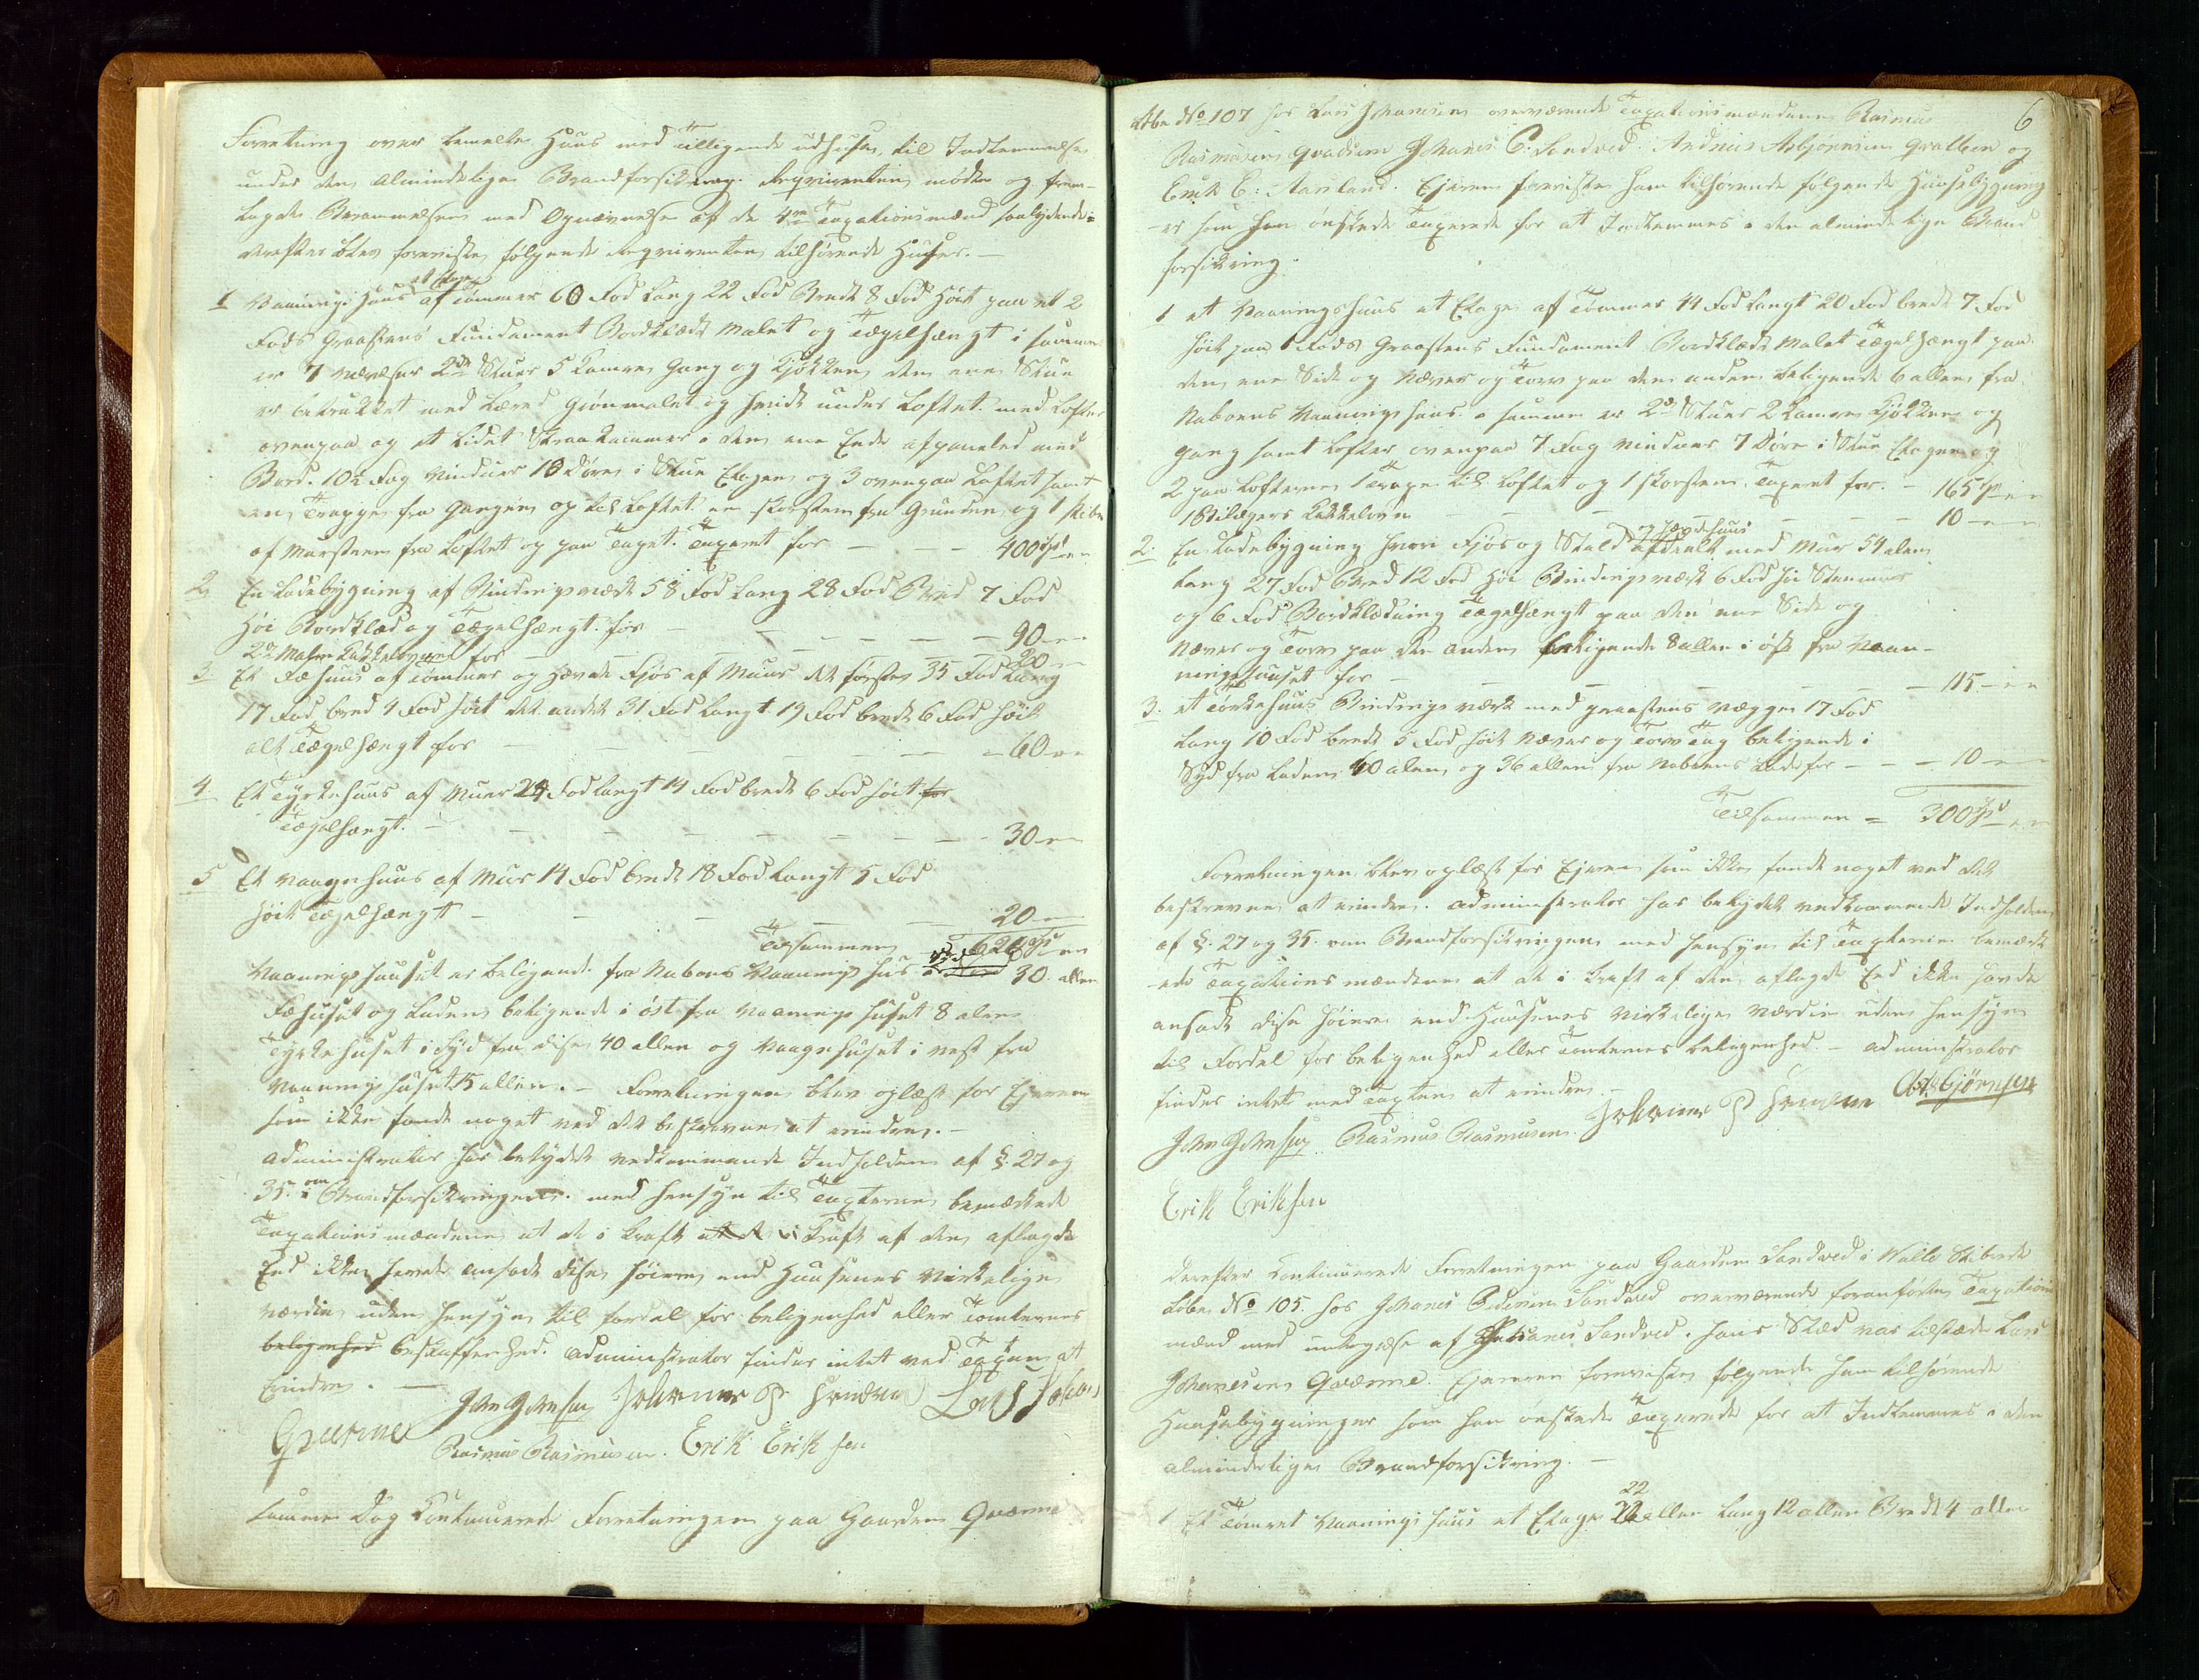 Forretning over bemelte Huus med tilligende udhuse, til Indlemmelse
under den Almindelige Brandforsikring. Reqvirenten mødte og frem-
lagde Berammelsen med Opnævnelse af de 4re Taxationsmænd saalydende
derefter blev foreviste følgende Reqvirenten tilhørende Huuser. —
1 Vaanings Huus et Etage af Tømmer 60 Fod Lang 22 Fod Bredt 8 Fod Høit paa et 2
Fods Graasteens Fundament Bordklædt Malet og Tægelhængt i samme
er 7 Værelser 2de Stuer 5 Kamre Gang og Kjøkken den ene Stue
er betrukket med Lærred Grønmalet og hvidt under Loftet. med Lofter
ovenpaa og et Lidet Skraakammer i den ene Ende afpaneled med
Bord. 10½ Fag Vinduer 10 Døre i Stue Etagen og 3 ovenpaa Loftet samt
en Trappe fra Gangen op til Loftet en skorsteen fra Grunden og 1 Pibe
af Mursteen fra Loftet og paa Taget. Taxeret for — — — 400 Spd
2 En Ladebygning af Bindingsværk 58 Fod Lang 28 Fod Bred 7 Fod
Høi Bordklæd og Tægelhængt for — — — — 90 —
2de Kakkelovne for — — — 20 —
3. Et Fæhuus af Tømmer og Fjøs af Muur det første 35 Fod Lang
17 Fod bred 4 Fod høit det andet 31 Fod Langt 19 Fod bredt 6 Fod Høit
alt Tægelhængt for — — — — 60 —
4. Et Tyrkehuus af Muur 24 Fod Langt 14 Fod bredt 6 Fod høit for
Tægelhængt. — — — — 30 —
5 Et Vaagnhuus af Muur 14 Fod bredt 18 Fod Langt 5 Fod
høit Tægelhængt — — — 20 —
Tilsammen 620 Spd
Vaaningshuuset er beligende fra Naboens Vaaningshus 30 allen
Fæhuset og Laden beligende i øst fra Vaaningshuset 8 alen
Tyrkehuset i Syd fra disse 40 allen og Vaagnhuset i Vest fra
Vaaningshuset 15 allen. — Forretningen blev oplæst for Ejeren
som ikke fandt noget ved det beskrevne at erindre. —
Administrator har betydet vedkommende Indholden af §. 27 og
35. om Brandforsikringen. med hensyn til Taxterne bemærkede
Taxationsmændene at de i Kraft at de i Kraft af den aflagde
Eed ikke havde ansadt disse høiere end Huusenes Virkelige
Værdie uden hensyn til fordel for beligenhed eller Tomternes
beligenhed beskaffenhed. Administrator finder intet ved Taxten at
Erindre. —
John Johnsen Johannes P Sendved Lars Johans
Qværne
Rasmus Rasmusen. Erik Eriksen
Samme Dag Continuerede Forretningen paa Gaarden Qværne
6
Løbe No 107 hos Lars Johanesen overværende Taxationsmændene Rasmus
Rasmusen Qvalsem Johanes P. Sendved. Andreas Asbjørnsen Qvalben og
Erik E: Aarsland. Ejeren foreviste ham tilhørende følgende Huusebygning
-er som han ønskede Taxerede for at Indlemmes i den almindelige Brand
forsikring.
1 et Vaaningshuus et Etage af Tømmer 44 Fod Langt 20 Fod bredt 7 Fod
høit paa 1 Fods Graasteens Fundament Bordklædt Malet Tægelhængt paa
den ene Side og Næver og Torv paa den anden beligende 6 allen fra
Naboens Vaaningshuus. i samme er 2de Stuer 2 Kamre Kjøkken og
Gang samt Lofter ovenpaa 7 Fag Vinduer 7 Døre i Stue Etagen og
2 paa Lofterne 1 Trappe til Loftet og 1 skorsteen Taxeret for. — 165 Spd
1 Bilægers Kakkelovn — — — — 10 —
2. En Ladebygning hvori Fjøs og Stald afdeelt med Mur 54 alen
Lang 27 Fod Bred 12 Fod Høi Bindingsværk 6 Fod høi Steenmur
og 6 Fod Bordklædning Tægelhængt paa den ene Side og
Næver og Torv paa den anden beligende 8 allen i øst fra Vaan-
ningshuuset for — — — 115 —
3. et Tørkehuus Bindingsværk med graasteens Vægge 17 Fod
Lang 10 Fod bredt 5 Fod høit Næver og Torv Tag beligende i
Syd fra Laden 40 alen og 36 allen fra Naboens Lade for — — — 10 —
Tilsammen = 300 Spd
Forretningen blev oplæst for Ejeren som ikke fandt noget ved det
beskrevne at erindre. Administrator har betydet vedkommende Indholden
af §. 27 og 35. om Brandforsikringen med hensyn til Taxterne bemærk
-ede Taxationsmændene at de i Kraft af den aflagde Eed ikke havde
ansadt disse høiere end Huusenes virkelige Værdie uden hensyn
til Fordel for beligenhed eller Tomternes beligenhed. — Administrator
finder intet ved Taxten at erindre. —
John Johnsen. Rasmus Rasmusen Johannes P Sendven Asbjørnsen
Erik Eriksen
Derefter Continuerede Forretningen paa Gaarden Sandved i Walle Skibrede
Løbe No 105. hos Johanes Pedersen Sandved overværende foranførte Taxations
mænd med undtagelse af Johanes Sandved. hans Stæd var tilstæde Lars
Johanesen Qværne. Ejeren foreviste følgende ham tilhørende
Huusebygninger som han ønskede Taxerede for at Indlemmes i den
almindelige Brandforsikring. —
1 Et Tømret Vaaningshuus et Etage 22 allen Lang 12 allen Bredt 4 allen